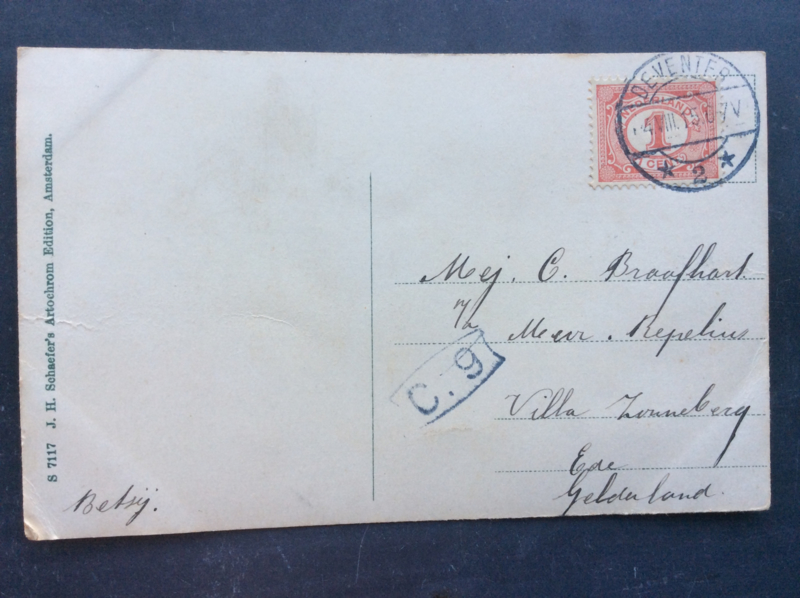 S 7117 J. H. Schaefer's Artochrom Edition, Amsterdam.
Betsy.
DEVENTER
7V
2
NEDERLAND
1
CENT
Mej. C. Braafhart
p/a Mevr. Repelius
C. 9
Villa Zonneberg
Ede
Gelderland.